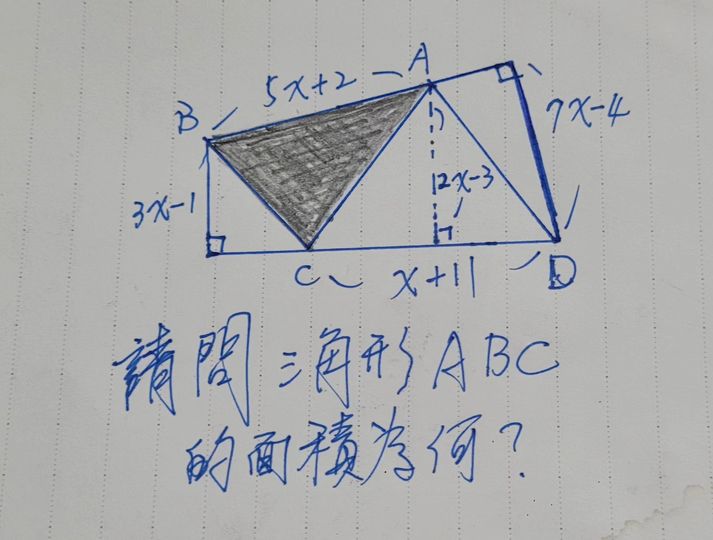 A
5x+2
B
7x-4
3x-1
2x-3
C
x+11
D
請問三角形ABC
的面積為何?